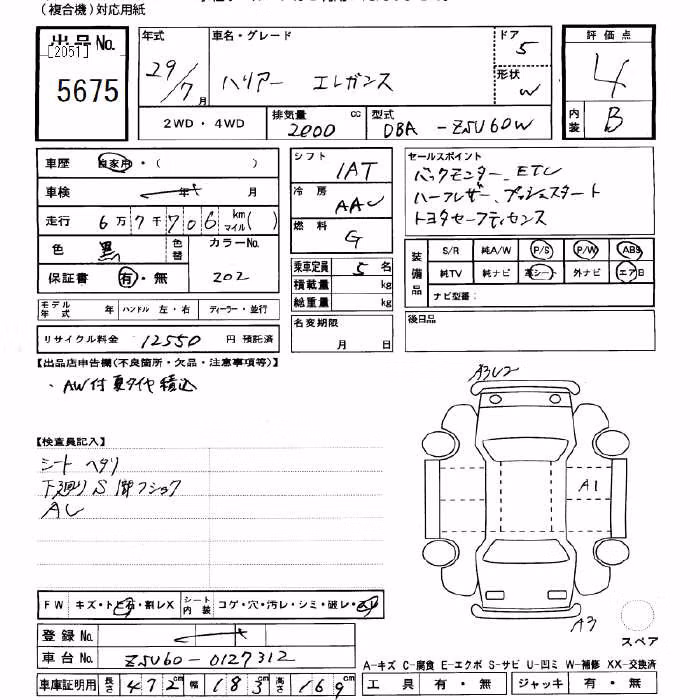 (複合機)対応用紙
出品No.
[2051]
5675
年式
29/7月
車名・グレード
ハリアー エレガンス
ドア
5
形状
W
評価点
4
内装
B
2WD・4WD
排気量
2000 cc
型式
DBA -ZSU60W
車歴
自家用・( )
車検
年 月
走行
6万7千706 km マイル( )
色
黒
色替
カラーNo.
202
保証書
有・無
シフト
1AT
冷房
AAC
燃料
G
乗車定員 5名
積載量 kg
総重量 kg
セールスポイント
バックモニター、ETC
ハーフレザー、プッシュスタート
トヨタセーフティセンス
装備品
S/R 純A/W P/S P/W ABS
純TV 純ナビ 革シート 外ナビ エアB
ナビ型番:
モデル年式 年
ハンドル 左・右
ディーラー・並行
名変期限
月 日
後日品
リサイクル料金 12550 円 預託済
【出品店申告欄(不良箇所・欠品・注意事項等)】
・AW付夏タイヤ積込
A3U2
【検査員記入】
シート ヘタリ
下廻りS
AU
A1
A3
FW キズ・トビ石・割レX
シート内装 コゲ・穴・汚レ・シミ・破レ・
登録No.
車台No. ZSU60-0127312
スペア
A-キズ C-腐食 E-エクボ S-サビ U-凹ミ W-補修 XX-交換済
車庫証明用 長さ 472cm 幅 183cm 高さ 169cm
工具 有・無 ジャッキ 有・無